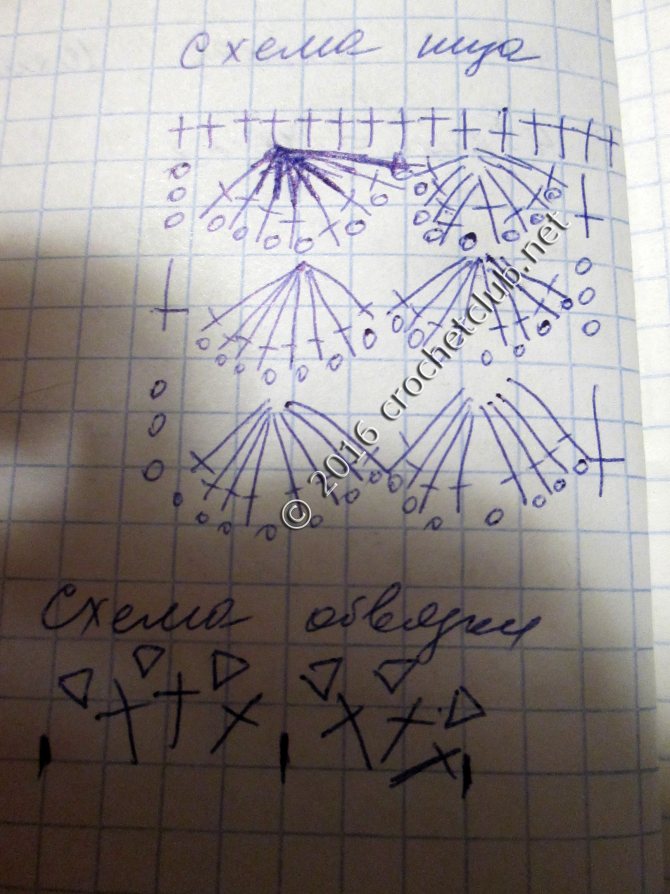 Схема
© 2016 crochetclub.net
Схема обвязки